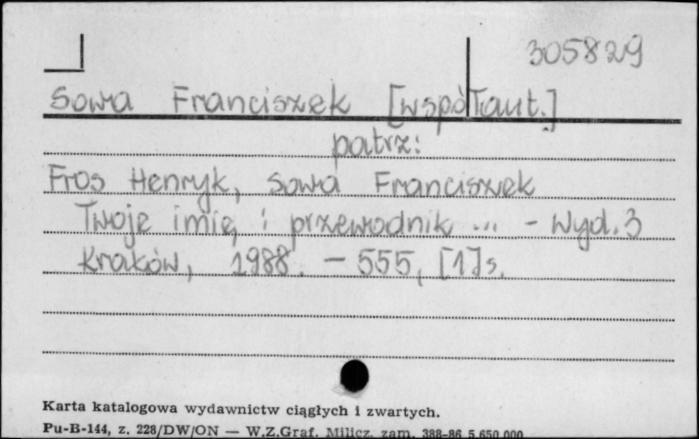 305829
Sowa Franciszek [współaut.]
patrz:
Fros Henryk, Sowa Franciszek
Twoje imię, : przewodnik ... - Wyd. 3
Kraków, 1988. - 555, [1] s.
Karta katalogowa wydawnictw ciągłych i zwartych.
Pu-B-144, z. 228/DW/ON — W.Z.Graf. Milicz, zam. 388-86 5 650 000